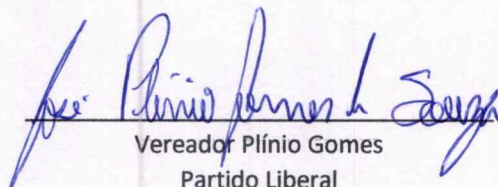 José Plínio Gomes de Souza
Vereador Plínio Gomes
Partido Liberal